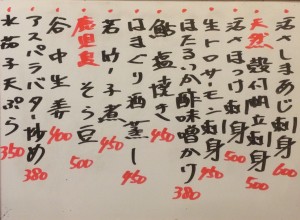 活〆しまあじ刺身 600
天然 殻付帆立刺身 500
活ほっけ刺身 500
生トロサーモン刺身 450
ほたるいか酢味噌かけ 380
鮎塩焼き
はまぐり酒蒸し 450
若竹子煮 450
鹿児島 そら豆 500
谷中生姜 400
アスパラバター炒め 380
水茄子天ぷら 350